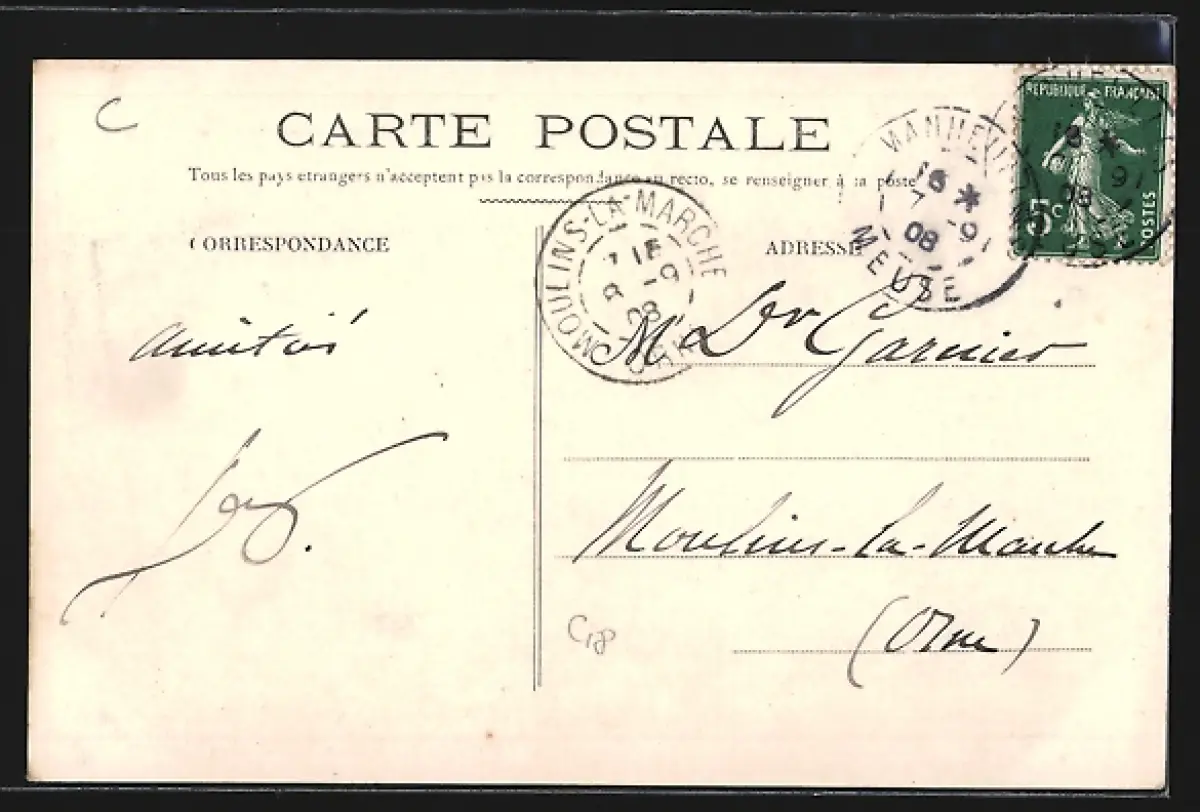 C
CARTE POSTALE
Tous les pays etrangers n'acceptent pas la correspondance au recto, se renseigner à la poste
CORRESPONDANCE
ADRESSE
MOULINS-LA-MARCHE
ORNE
MEUSE
08
REPUBLIQUE FRANÇAISE
5c
POSTES
Amitiés
Mr Dr Garnier
Moulins-la-Marche
(Orne)
C18